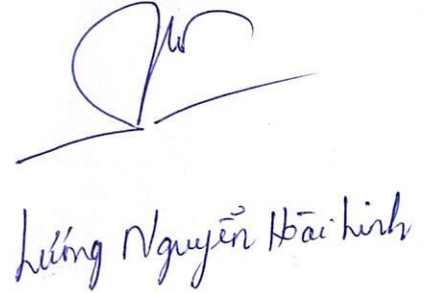 Lương Nguyễn Hoài Linh